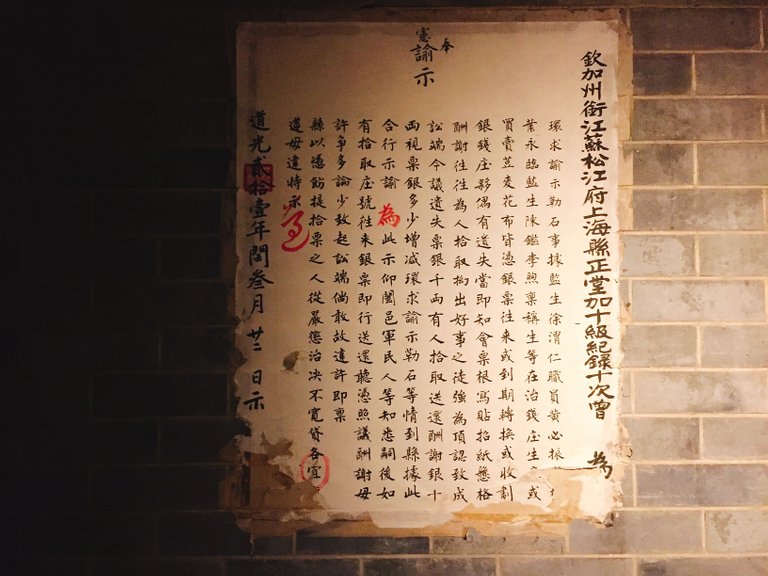 欽加州銜江蘇松江府上海縣正堂加十級紀錄十次曾 為
環求諭示勒石事據監生徐渭仁職員黃必振
葉永臨監生陳鑑李煦稟稱生等在治錢庄生 或
買賣荳麦花布皆憑銀票往来或到期轉換或收劃
銀錢庄夥偶有遺失當即知會票根寫貼招紙懸格
酬謝往往為人拾取掏出好事之徒強為頂認致成
訟端今議遺失票銀千両有人拾取送還酬謝銀十
両視票銀多少增减環求諭示勒石等情到縣據此
合行示諭為此示仰闔邑軍民人等知悉嗣後如
有拾取庄號往来銀票即行送還聽憑照議酬謝毋
許争多論少致起訟端倘敢故違許即票
縣以憑飭提拾票之人從嚴懲治决不寬貸各宜
遵毋違特示
奉
憲諭示
道光貳拾壹年閏叁月廿二日示